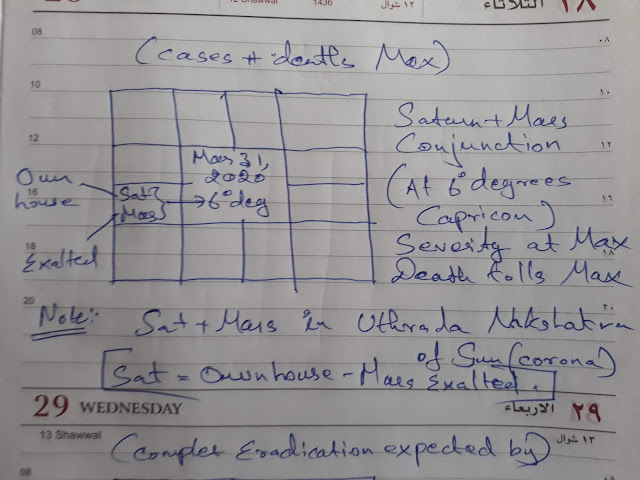 12 Shawwal 1436 ١٢ شوال الثلاثاء ٢٨
08 ٠٨
(cases + deaths Max)
10 ١٠
Saturn + Mars
12 Conjunction ١٢
Mar 31,
2020
Own
house
Sat
Mars
6° deg
(At 6° degrees
Capricon)
16 ١٦
Exalted
Severity at Max
18 ١٨
Death tolls Max
20 ٢٠
Note:- Sat + Mars in Uthrada Nakshatra
of Sun (corona)
Sat = Own house - Mars Exalted.
29 WEDNESDAY الاربعاء ٢٩
13 Shawwal ١٣ شوال
(Complet Eradication expected by)
08 ٠٨